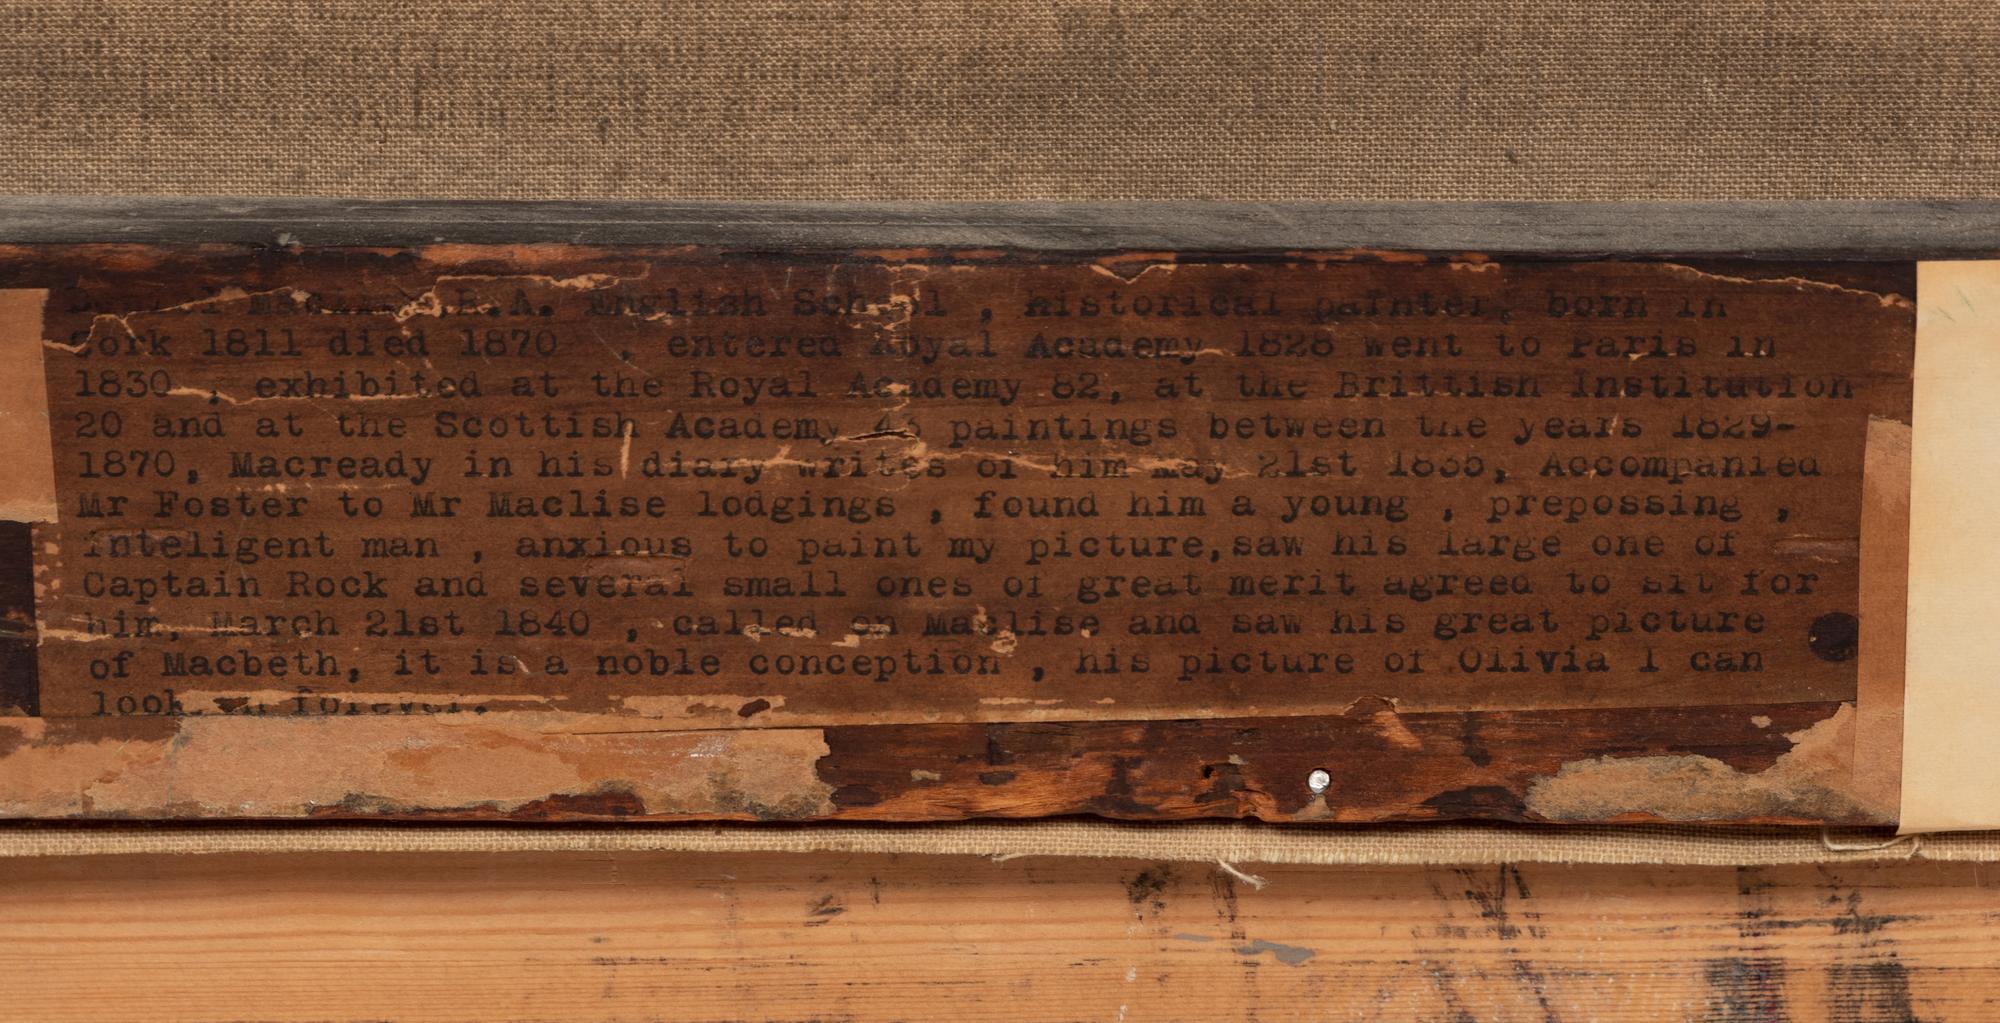 Daniel Maclise.R.A. English School , Historical painter, born in
Cork 1811 died 1870 , entered Royal Academy 1828 went to Paris in
1830 , exhibited at the Royal Academy 82, at the Brittish Institution
20 and at the Scottish Academy 43 paintings between the years 1829-
1870, Macready in his diary writes of him May 21st 1835, Accompanied
Mr Foster to Mr Maclise lodgings , found him a young , prepossing ,
inteligent man , anxious to paint my picture,saw his large one of
Captain Rock and several small ones of great merit agreed to sit for
him, March 21st 1840 , called on Maclise and saw his great picture
of Macbeth, it is a noble conception , his picture of Olivia I can
look on forever.